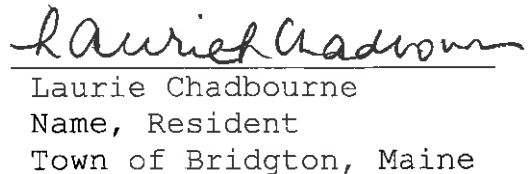 Laurie Chadbourne
Laurie Chadbourne
Name, Resident
Town of Bridgton, Maine